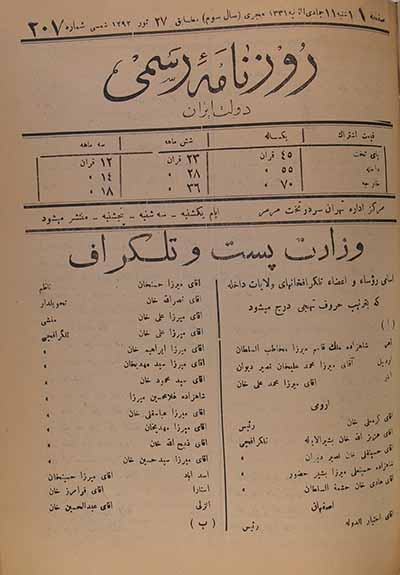 صفحه ۱ شنبه ۱۱ جمادی الثانیه ۱۳۳۱ هجری (سال سوم) مطابق ۲۷ ثور ۱۲۹۲ شمسی شماره ۲۰۷
روزنامهٔ رسمی
دولت ایران
قیمت اشتراك یکساله شش ماهه سه ماهه
پای تخت ۴۵ قران ۲۳ قران ۱۲ قران
داخله ۵۵ » ۲۸ » ۱۴ »
خارجه ۷۰ » ۳۶ » ۱۸ »
مرکز اداره تهران سردر تخت مرمر ایام یکشنبه ـ سه شنبه ـ پنجشنبه ـ منتشر میشود
وزارت پست و تلگراف
اسامی رؤساء و اعضاء تلگرافخانهای ولایات داخله
که بترتیب حروف تهجی درج میشود
(ا)
شاهزاده ملك قاسم میرزا مخاطب السلطان
اردبیل آقای میرزا محمد علیخان نصیر دیوان
آقای میرزا محمد علی خان
ارومی
آقای خان رئیس
آقای عزیز الله خان بشیرالایاله تلگرافچی
آقای حسینقلی خان نصیر دیوان »
شاهزاده حسینعلی میرزا بشیر حضور »
آقای هادی خان حشمة السلطان »
اصفهان
آقای اختیار الدوله رئیس
آقای میرزا حسنخان ناظم
آقای نصرالله خان تحویلدار
آقای میرزا علی خان منشی
آقای میرزا علی خان تلگرافچی
آقای میرزا ابراهیم خان »
آقای میرزا سید مهدیخان »
آقای سید محمود خان »
شاهزاده غلامحسین میرزا »
آقای میرزا عباسقلی خان »
آقای میرزا مهدیخان »
آقای ذبیح الله خان »
آقای میرزا سید حسین خان »
اسد آباد آقای میرزا حسینخان
آستارا آقای فرامرز خان
انزلی آقای عبدالحسین خان
(ب)